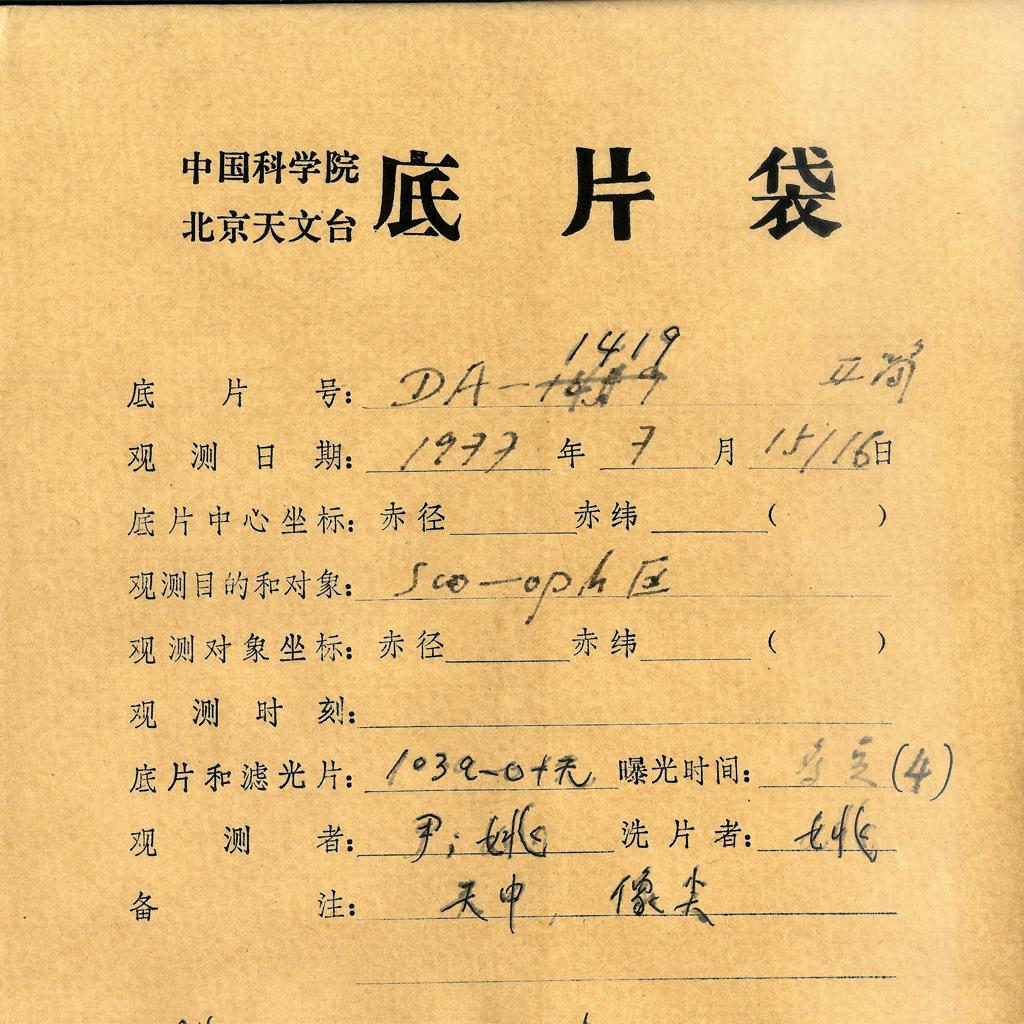 中国科学院
北京天文台
底片袋
1419
底片号: DA-
观测日期: 1977 年 7 月 15/16日
底片中心坐标: 赤径 赤纬 ( )
观测目的和对象: Sco-oph 区
观测对象坐标: 赤径 赤纬 ( )
观测时刻:
底片和滤光片: 103a-O+无 曝光时间: (4)
观测者: 尹; 姚 洗片者: 姚
备注: 天中, 像尖